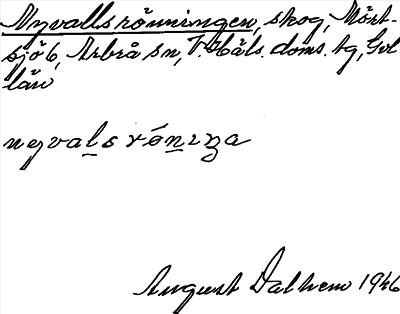 Nyvallsrönningen, skog, Mört-
sjö 6, Arbrå sn, V. Häls. doms. tg, Gvl
län
nyvalsrónıŋa
August Dalhem 1946